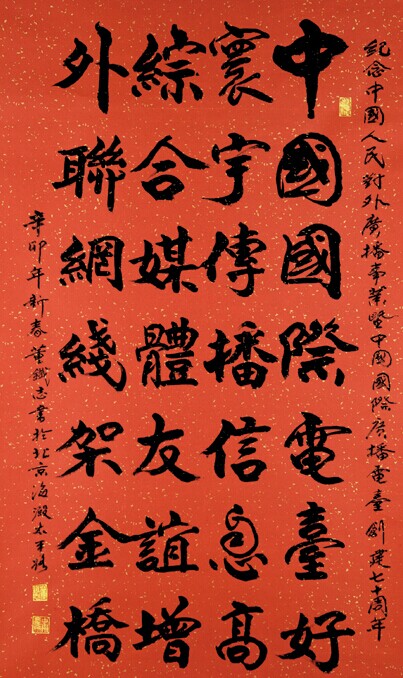 紀念中國人民對外廣播事業暨中國國際廣播電臺創建七十周年
中國國際電臺好
寰宇傳播信息高
綜合媒體友誼增
外聯網綫架金橋
辛卯年新春董鐵志書於北京海淀太平路